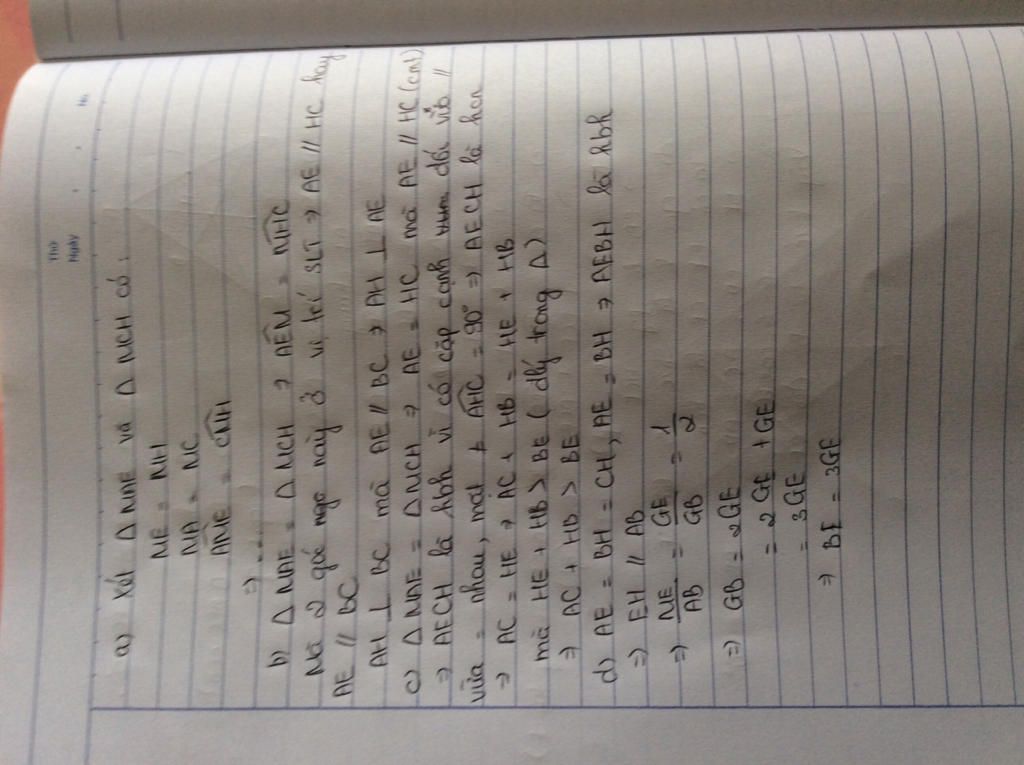 Thứ
Ngày
No.
a) Xét Δ NAE và Δ NCH có:
NE = NH
NA = NC
ANE = CNH
=> ....
b) Δ NAE = Δ NCH => AEN = NHC
Mà 2 góc ngo này ở vị trí SLT => AE // HC hay
AE // BC
AH ⊥ BC mà AE // BC => AH ⊥ AE
c) Δ NAE = Δ NCH => AE = HC mà AE // HC (cmt)
=> AECH là hbh vì có cặp cạnh đối vừa //
vừa = nhau, mặt ≠ AHC = 90° => AECH là hcn
=> AC = HE => AC + HB = HE + HB
mà HE + HB > BE ( đlý trong Δ)
=> AC + HB > BE
d) AE = BH = CH, AE = BH => AEBH là hbh
=> EH // AB
=> NE/AB = GE/GB = 1/2
=> GB = 2GE
= 2 GE + GE
= 3GE
=> BE = 3GE